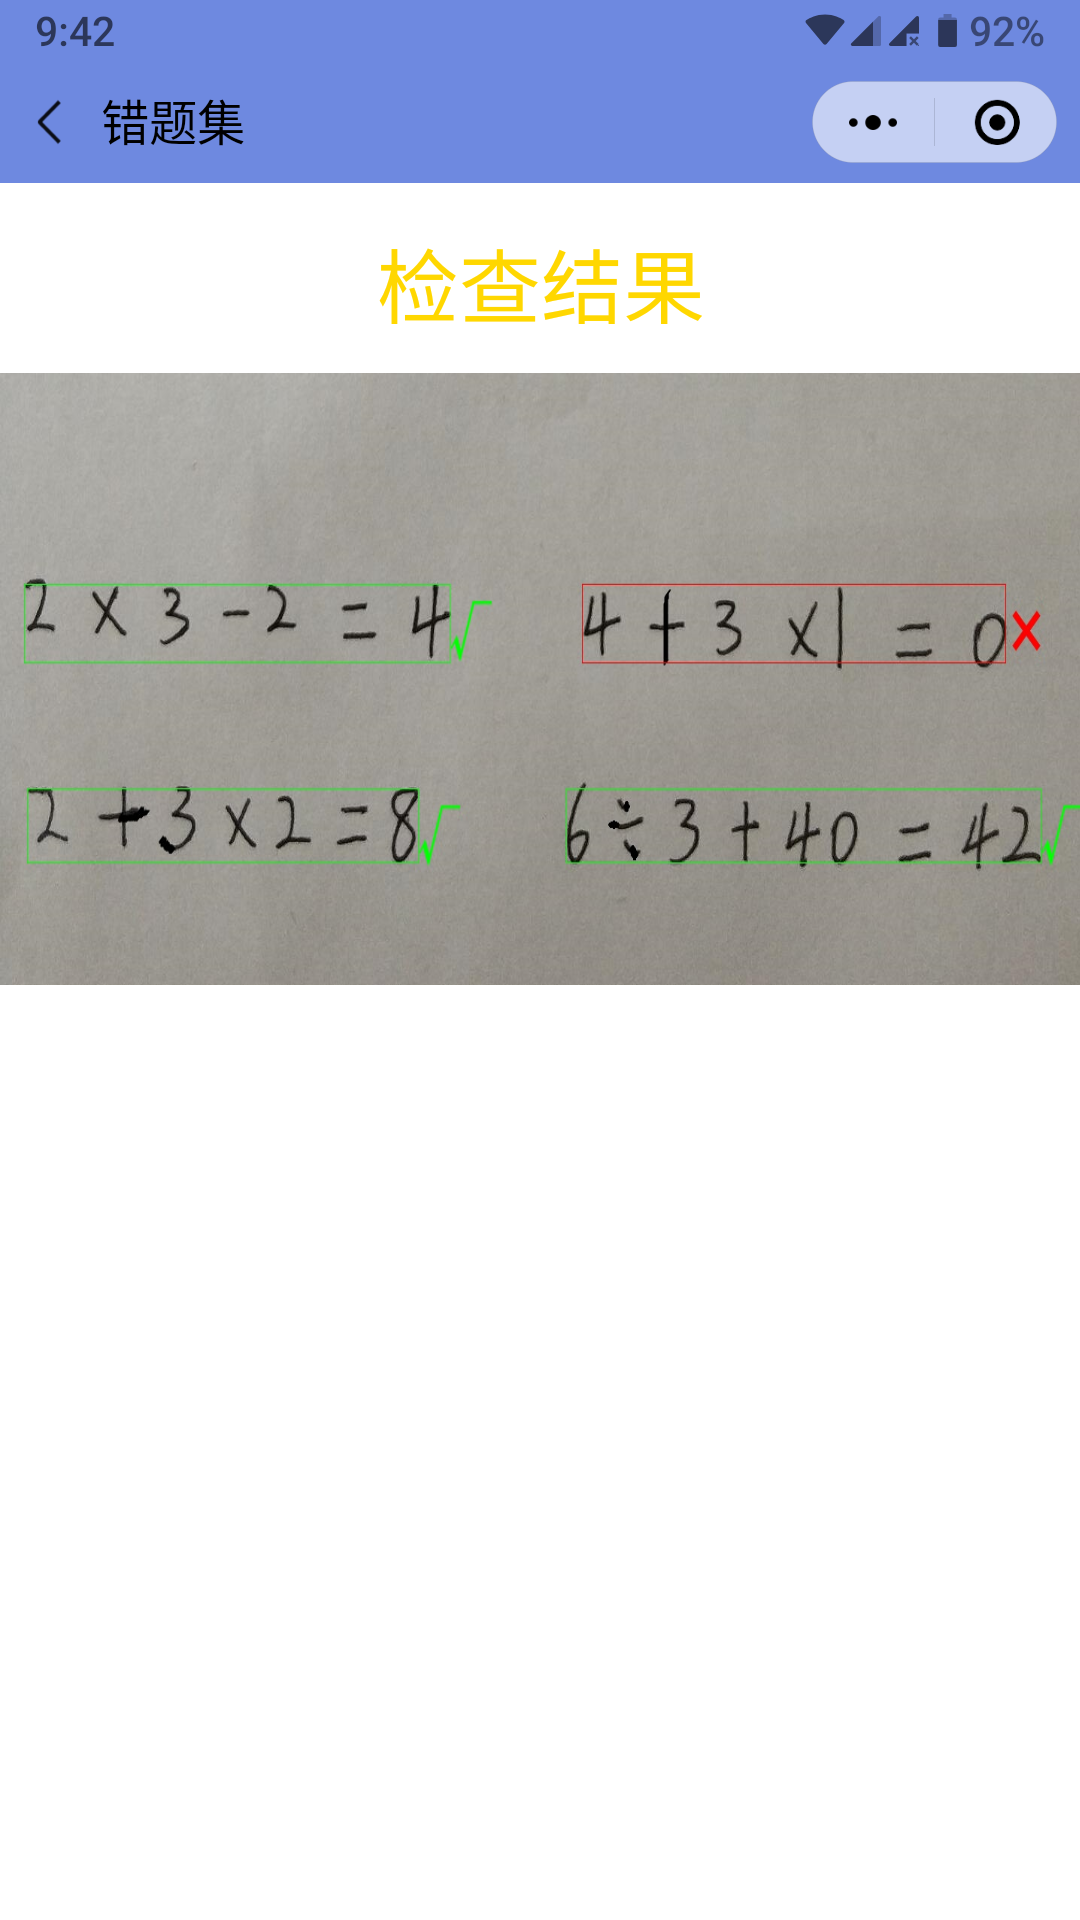 9:42 92%
错题集
检查结果
2 × 3 - 2 = 4√ 4 + 3 ×1 = 0×
2 + 3 × 2 = 8√ 6 ÷ 3 + 40 = 42√